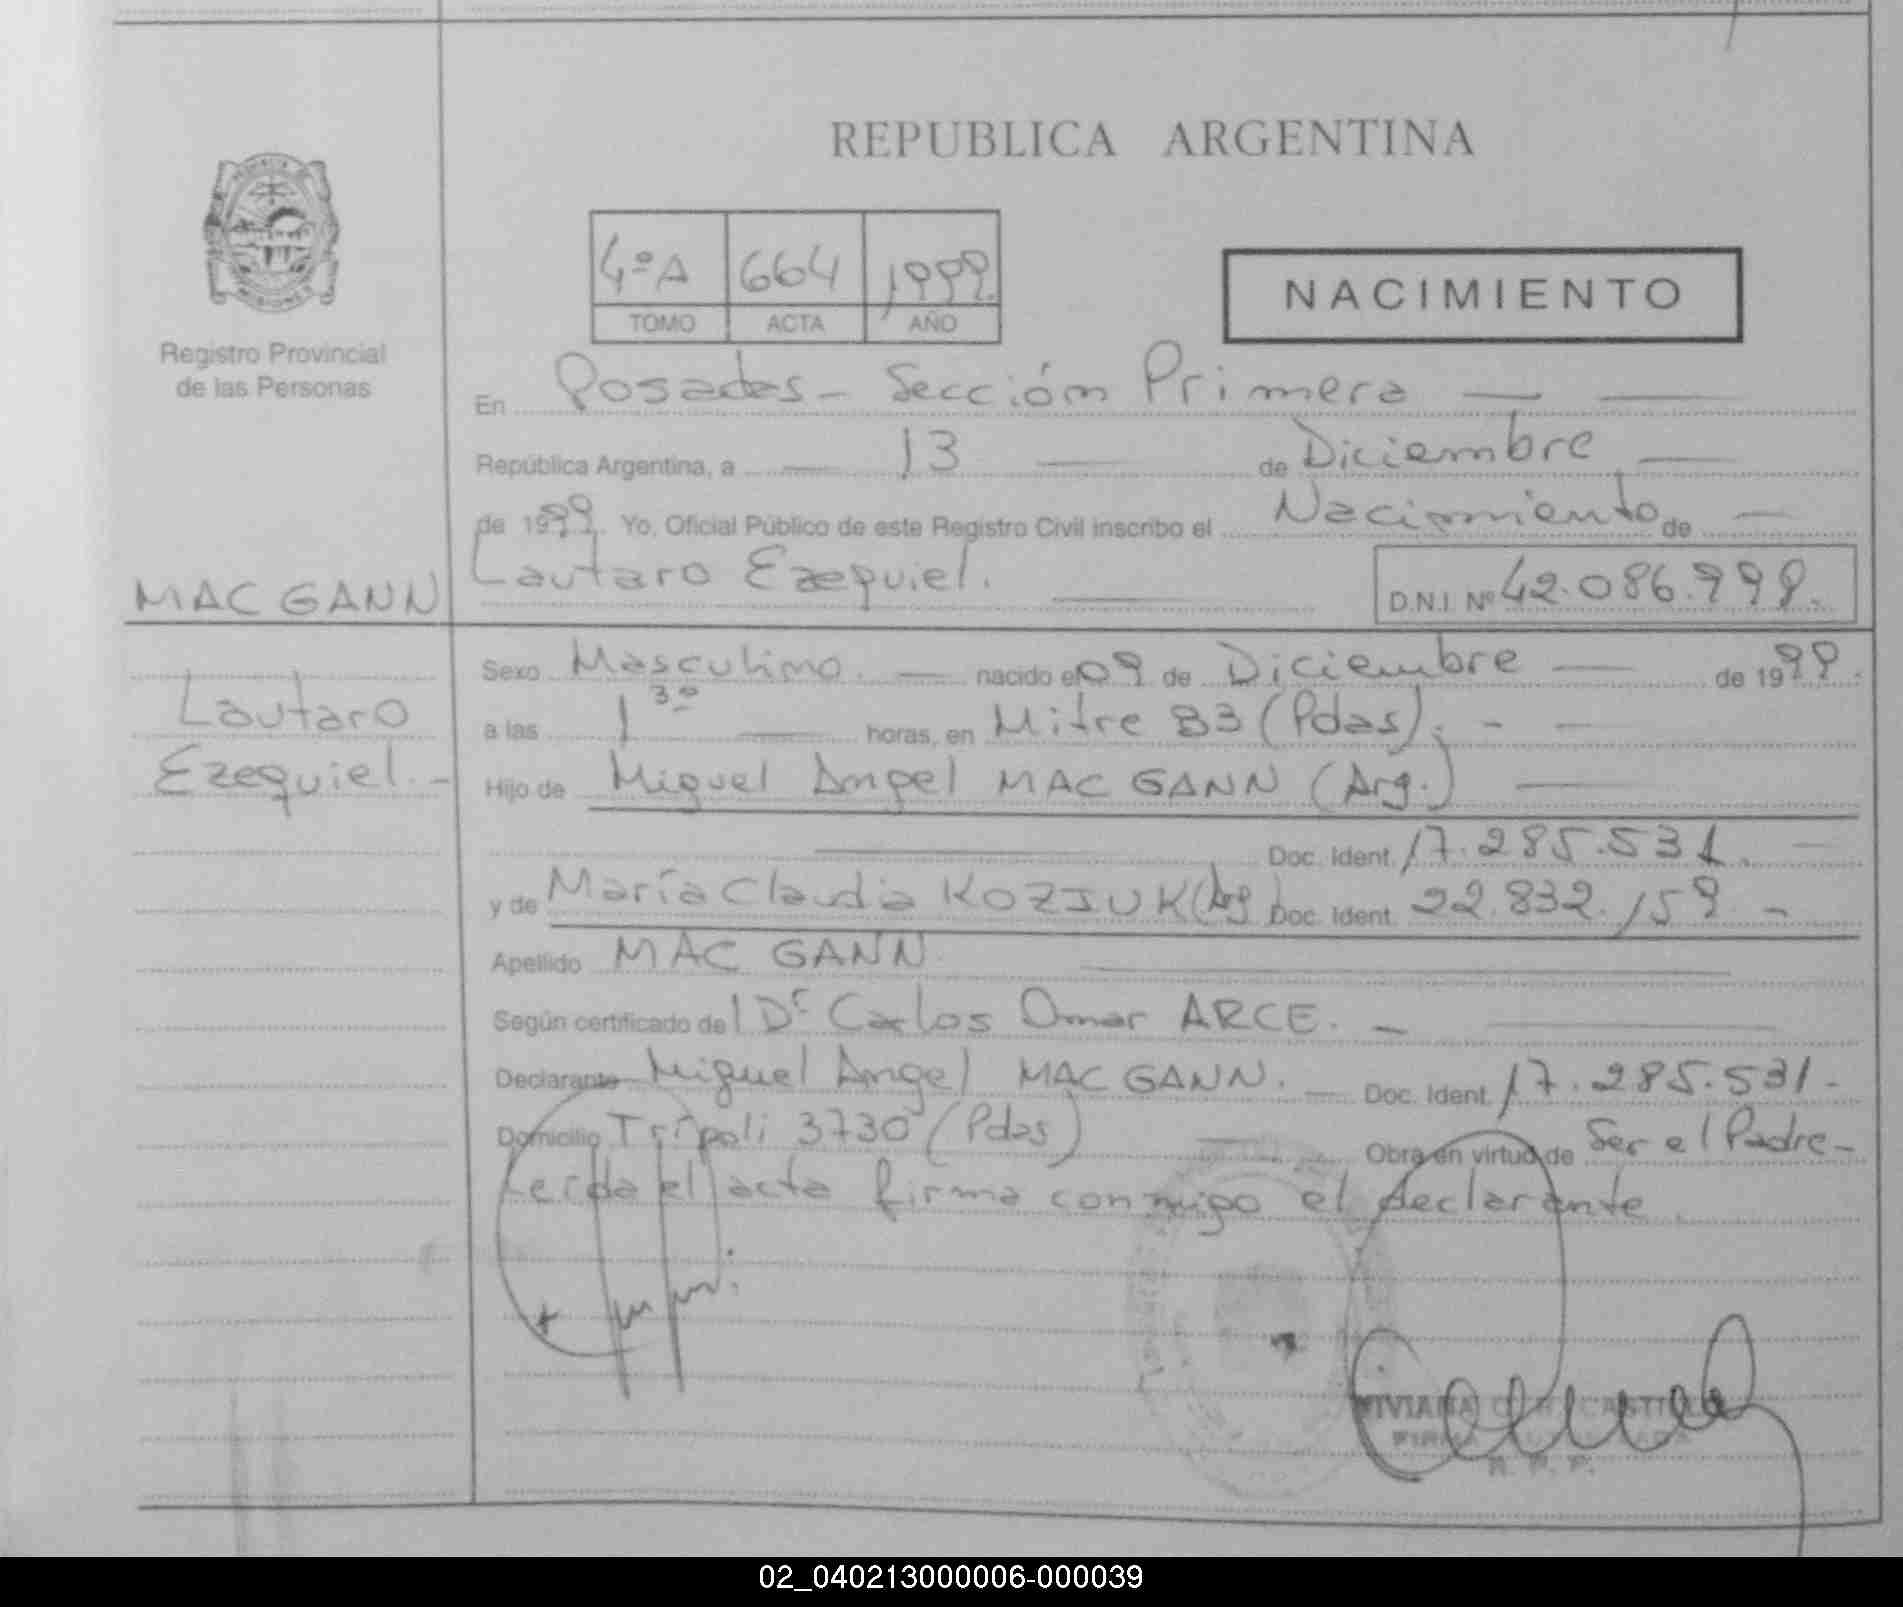 REPUBLICA ARGENTINA
4ºA 664 1999.
TOMO ACTA AÑO
NACIMIENTO
MISIONES
Registro Provincial
de las Personas
En Posadas - Sección Primera
República Argentina, a 13 de Diciembre
de 1999. Yo, Oficial Público de este Registro Civil inscribo el Nacimiento de
MAC GANN
Lautaro Ezequiel.
D.N.I. Nº 42.086.999.
Lautaro
Ezequiel.-
Sexo Masculino. nacido el 09 de Diciembre de 1999.
a las 1 30 horas, en Mitre 83 (Pdas). -
Hijo de Miguel Angel MAC GANN (Arg.)
Doc. Ident. 17.285.531.
y de María Claudia KOZIUK (Arg) Doc. Ident. 22.832.159 -
Apellido MAC GANN
Según certificado del Dr Carlos Omar ARCE. -
Declarante Miguel Angel MAC GANN. - Doc. Ident. 17.285.531-
Domicilio Trípoli 3730 (Pdas) Obra en virtud de Ser el Padre-
Leída el acta firma conmigo el declarante
VIVIANA CASTILLO
FIRMA
R. P. P.
02_040213000006-000039